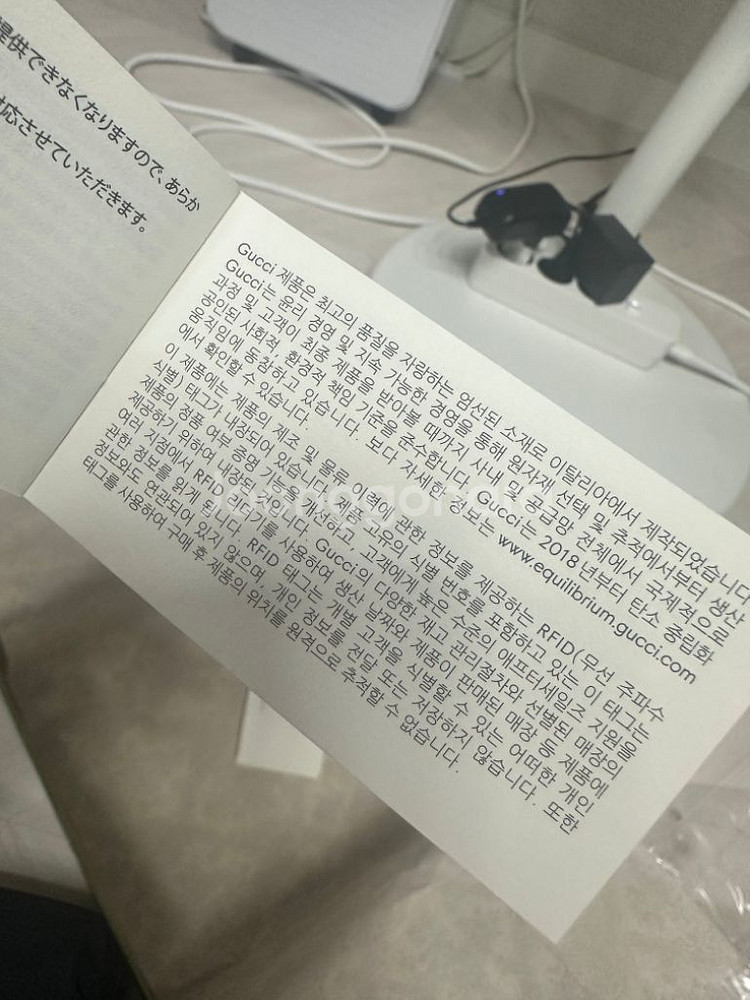 提供できなくなりますので、あらか
対応させていただきます。
Gucci 제품은 최고의 품질을 자랑하는 엄선된 소재로 이탈리아에서 제작되었습니다.
Gucci는 윤리 경영 및 지속 가능한 경영을 통해 원자재 선택 및 추적에서부터 생산
과정 및 고객이 최종 제품을 받아볼 때까지 사내 및 공급망 전체에서 국제적으로
공인된 사회적, 환경적 책임 기준을 준수합니다. Gucci는 2018년부터 탄소 중립화
움직임에 동참하고 있습니다. 보다 자세한 정보는 www.equilibrium.gucci.com
에서 확인할 수 있습니다.
이 제품에는 제품의 제조 및 물류 이력에 관한 정보를 제공하는 RFID(무선 주파수
식별) 태그가 내장되어 있습니다. 제품 고유의 식별 번호를 포함하고 있는 이 태그는
제품의 정품 여부 증명 기능을 개선하고, 고객에게 높은 수준의 애프터세일즈 지원을
제공하기 위하여 내장된 것입니다. Gucci의 다양한 재고 관리절차와 선별된 매장의
여러 지점에서 RFID 판독기를 사용하여 생산 날짜와 제품이 판매된 매장 등 제품에
관한 정보를 읽게 됩니다. RFID 태그는 개별 고객을 식별할 수 있는 어떠한 개인
정보와도 연관되어 있지 않으며, 개인 정보를 전달 또는 저장하지 않습니다. 또한
태그를 사용하여 구매 후 제품의 위치를 원격으로 추적할 수 없습니다.
Joonggonara